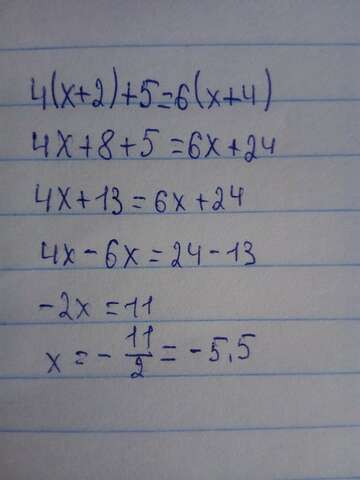 4(x+2)+5=6(x+4)
4x+8+5=6x+24
4x+13=6x+24
4x-6x=24-13
-2x=11
x=-11/2=-5,5